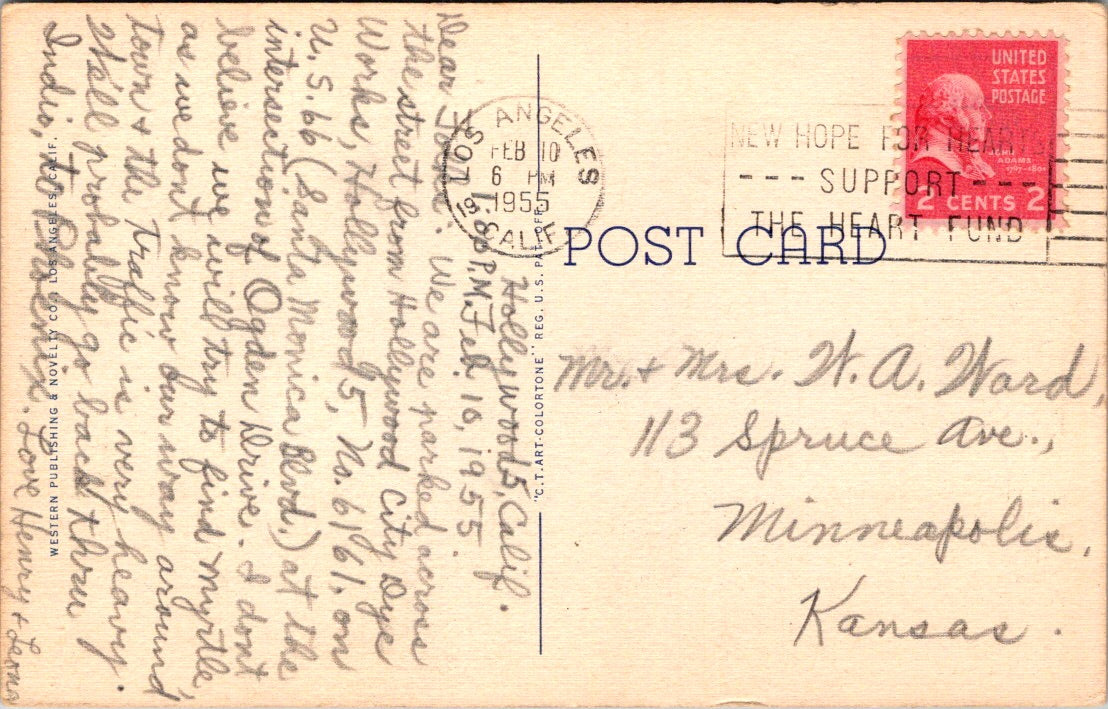 Hollywood 5, Calif.
1:00 P.M. Feb. 10, 1955.
Dear Folks: We are parked across
the street from Hollywood City Dye
Works, Hollywood 5, No. 6161, on
U.S. 66 (Santa Monica Blvd.) at the
intersection of Ogden Drive. I dont
believe we will try to find Myrtle,
as we don't know our way around
town & the traffic is very heavy.
We'll probably go back thru
Indio, to Phoenix. Love Henry & Leona
WESTERN PUBLISHING & NOVELTY CO., LOS ANGELES, CALIF.
"C.T. ART-COLORTONE" REG. U.S. PAT. OFF.
LOS ANGELES
FEB 10
6 PM
1955
CALIF
NEW HOPE FOR HEARTS
--- SUPPORT ---
THE HEART FUND
UNITED
STATES
POSTAGE
JOHN
ADAMS
2 CENTS 2
POST CARD
Mr. & Mrs. W. A. Ward,
113 Spruce Ave.,
Minneapolis,
Kansas.